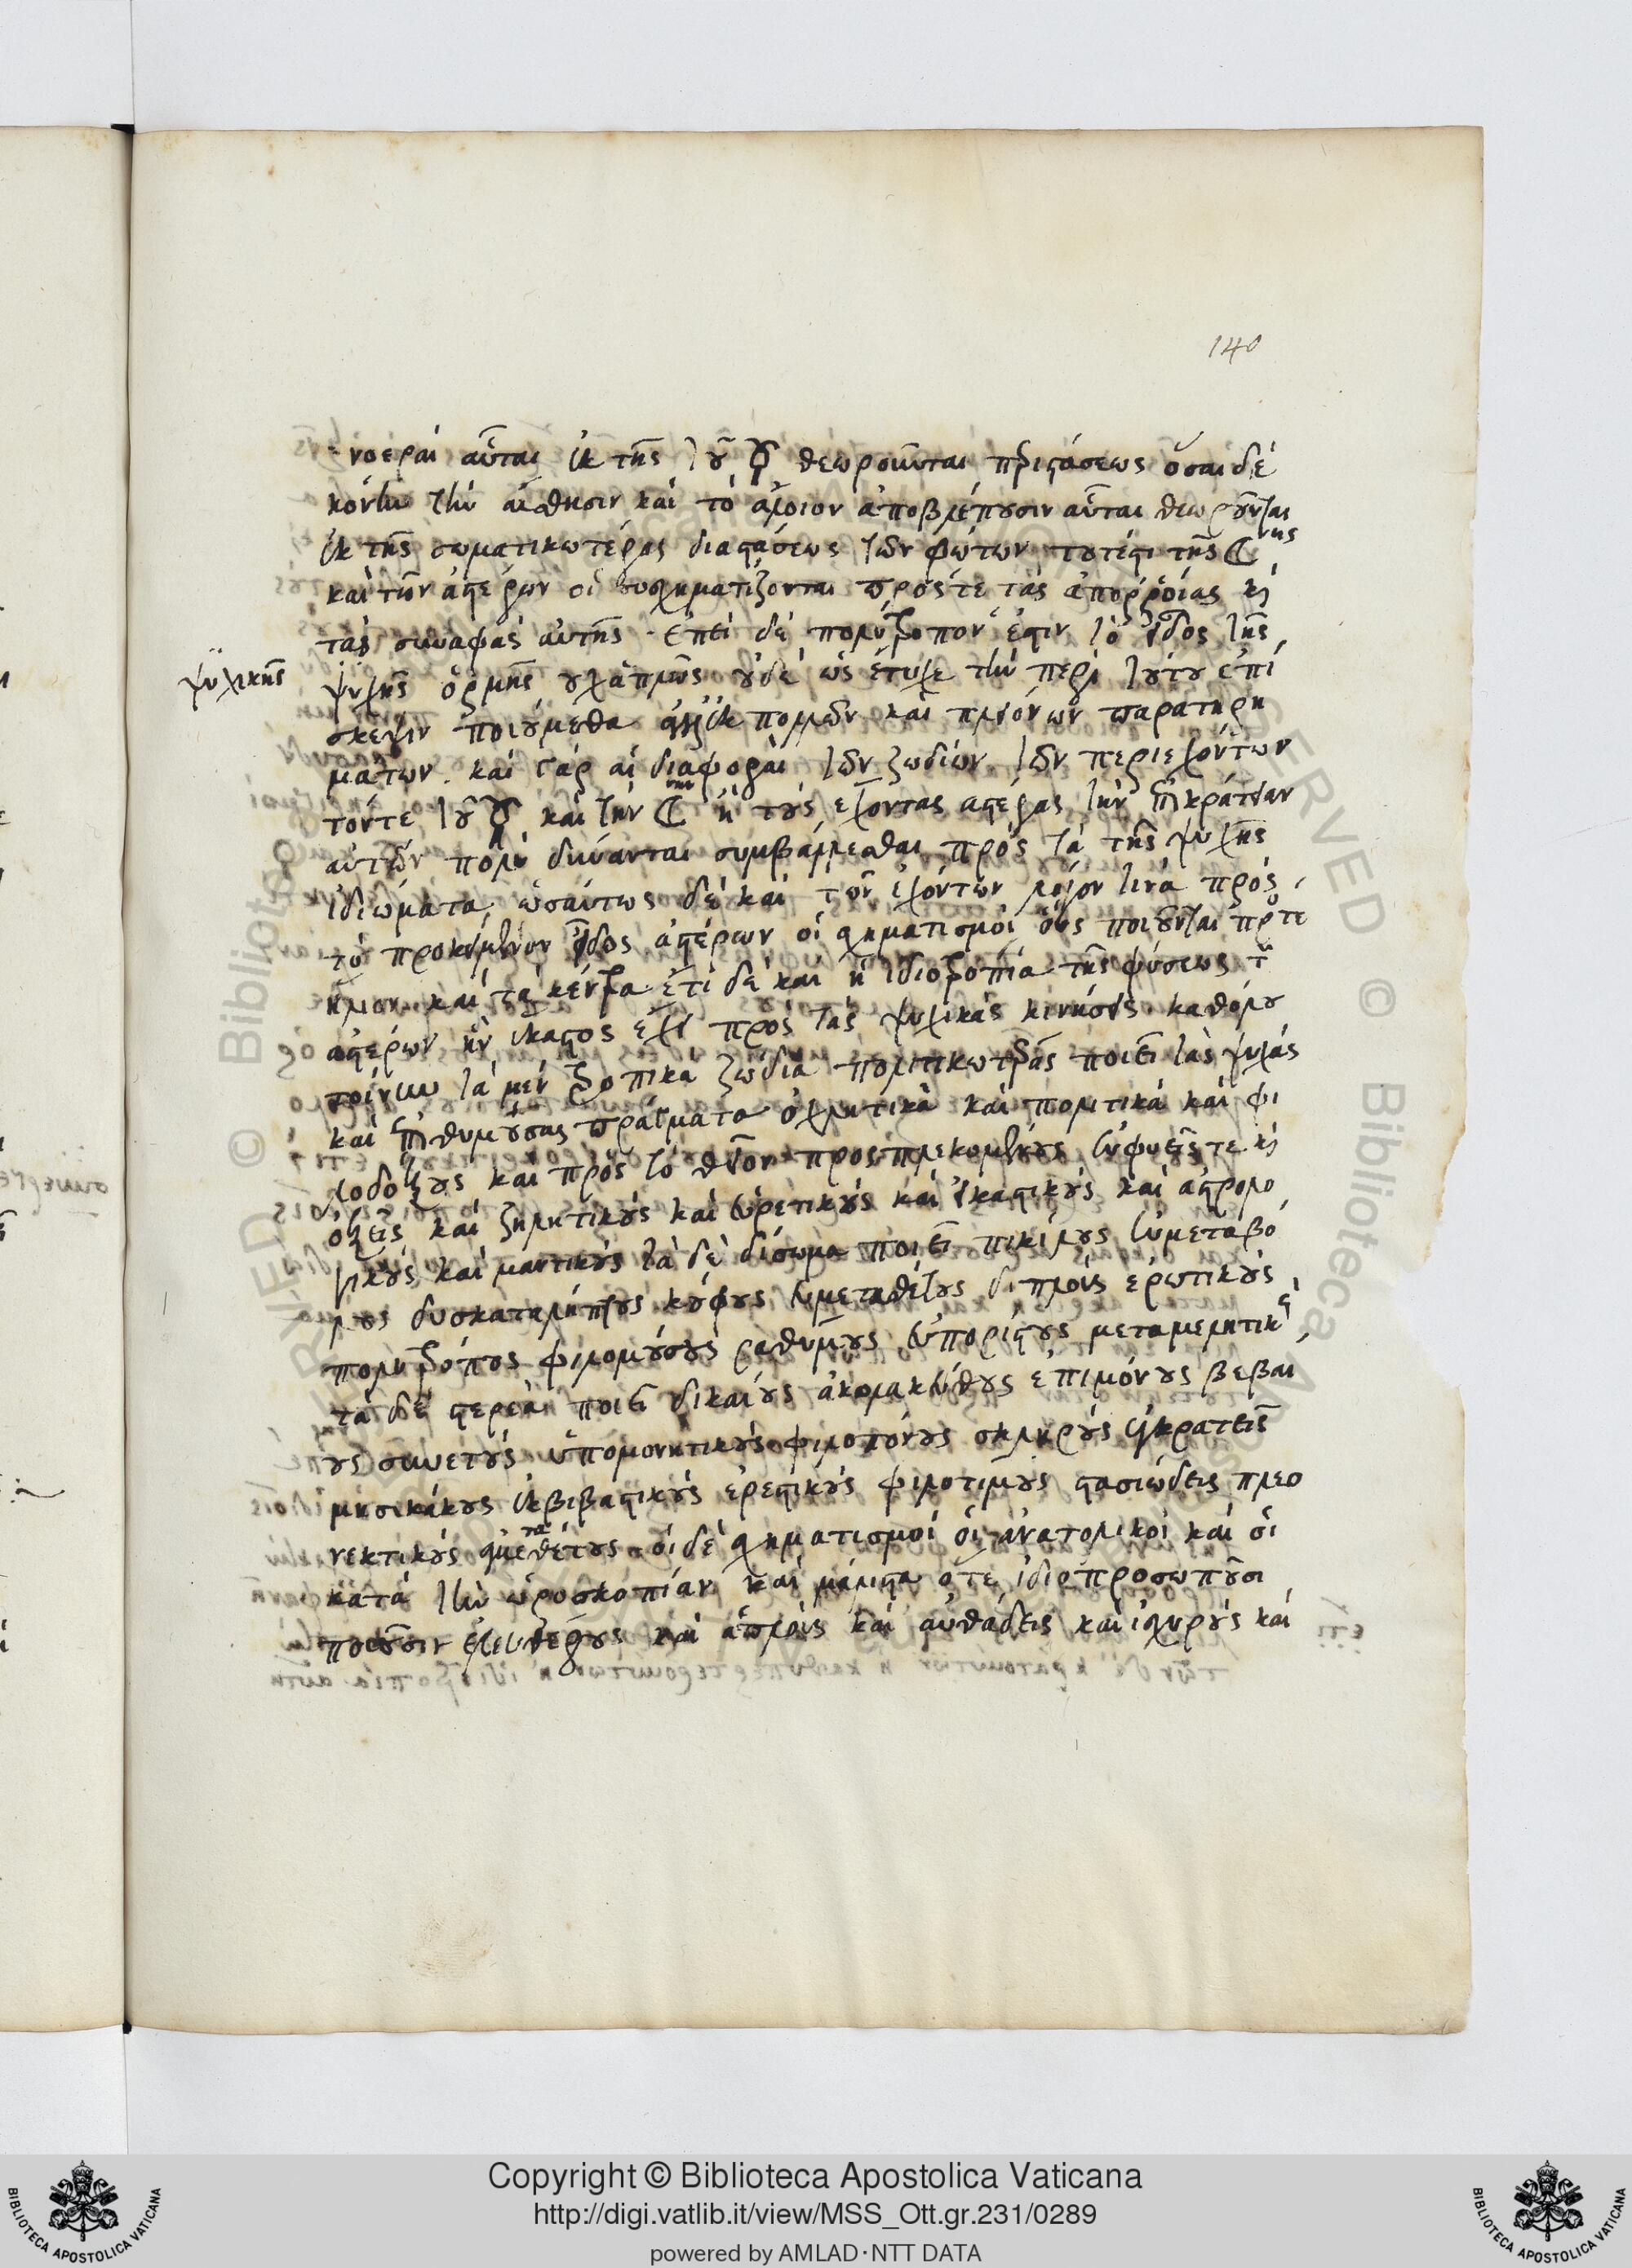 140
νοεραὶ αὗται ἐκ τῆς τοῦ ☿ θεωροῦνται περιστάσεως ὅσαι δὲ
κόντὴν τὴν αἴσθησιν καὶ τὸ ἄλογον ἀποβλέπουσιν αὗται θεωροῦνται
ἐκ τῆς σωματικωτέρας διαστάσεως τῶν φώτων τουτέστι τῆς ☾ νης
καὶ τῶν ἀστέρων οἳ συσχηματίζονται πρός τε τὰς ἀπορροίας κὶ
τὰς συναφὰς αὐτῆς. ἐπεὶ δὲ πολύτροπον ἐστιν τὸ εἶδος τῆς
ψυχικῆς
ψυχῆς ὁρμῆς οὐχ ἁπλῶς οὐδὲ ὡς ἔτυχε τὴν περὶ τούτου ἐπί
σκεψιν ποιούμεθα ἀλλ' ἐκ πολλῶν καὶ πλειόνων παρατηρη
μάτων. καὶ γὰρ αἱ διαφοραὶ τῶν ζωδίων τῶν περιεχόντων
τόντε τοῦ ☿ καὶ τὴν ☾ νην ἢ τοὺς ἔχοντας ἀστέρας τὴν ἐπικράτειαν
αὐτῶν πολὺ δύνανται συμβάλλεσθαι πρὸς τὰ τῆς ψυχῆς
ἰδιώματα, ὡσαύτως δὲ καὶ τῶν ἐχόντων λόγον τινὰ πρὸς
τὸ προκείμενον εἶδος ἀστέρων οἱ σχηματισμοὶ οὓς ποιοῦνται πρός τε
ἥλιον καὶ τὰ κέντρα ἔτι δὲ καὶ ἡ ἰδιοτροπία τῆς φύσεως τῶν
ἀστέρων ἣν ἕκαστος ἔχει πρὸς τὰς ψυχικὰς κινήσεις καθόλου
τοίνυν τὰ μὲν τροπικὰ ζώδια πολιτικωτέρας ποιεῖ τὰς ψυχὰς
καὶ ἐπιθυμούσας πράγματα ὀχλητικὰ καὶ πολιτικὰ καὶ φι
λοδόξους καὶ πρὸς τὸ θεῖον προσπλεκομένους εὐφυεῖς τε κὶ
ὀξεῖς καὶ ζηλητικοὺς καὶ εὑρετικοὺς καὶ εἰκαστικοὺς καὶ ἀστρολο
γικοὺς καὶ μαντικοὺς τὰ δὲ δίσωμα ποιεῖ πικίλους εὐμεταβό
λους δυσκαταλήπτους κούφους εὐμεταθέτους διπλοῦς ἐρωτικοὺς
πολυτρόπους φιλομούσους ῥαθύμους εὐπορίστους μεταμελητικούς
τὰ δὲ στερεὰ ποιεῖ δικαίους ἀκολακεύτους ἐπιμόνους βεβαί
ους συνετοὺς ὑπομονητικοὺς φιλοπόνους σκληροὺς ἐγκρατεῖς
μνσικάκους ἐκβιβαστικοὺς ἐρεστικοὺς φιλοτίμους στασιώδεις πλεο
νεκτικοὺς ἀμεταθέτους οἱ δὲ σχηματισμοὶ οἱ ἀνατολικοὶ καὶ οἱ
κατὰ τὴν ὡροσκοπίαν καὶ μάλιστα ὅτε ἰδιοπροσωποῦσι
ποιοῦσιν ἐλευθέρους καὶ ἁπλοῦς καὶ αὐθάδεις καὶ ἰσχυροὺς καὶ
Copyright © Biblioteca Apostolica Vaticana
http://digi.vatlib.it/view/MSS_Ott.gr.231/0289
powered by AMLAD·NTT DATA